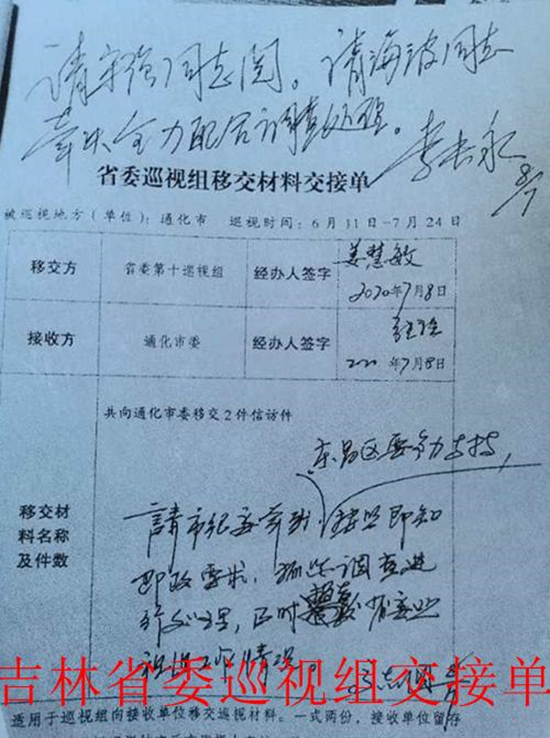 请宇强同志阅。请海波同志
牵头全力配合调查处理。
李长永
8/7
省委巡视组移交材料交接单
被巡视地方（单位）：通化市 巡视时间：6月11日-7月24日
移交方 省委第十巡视组 经办人签字 姜慧敏
2020年7月8日
接收方 通化市委 经办人签字
2020年7月8日
共向通化市委移交2件信访件
东昌区要全力支持，
移交材
料名称
及件数
請市纪委牵头，按照即知
即改要求，抓紧调查进
行处理，及时 省委巡
视组工作情况。
吉林省委巡视组交接单
适用于巡视组向接收单位移交巡视材料。一式两份，接收单位留存